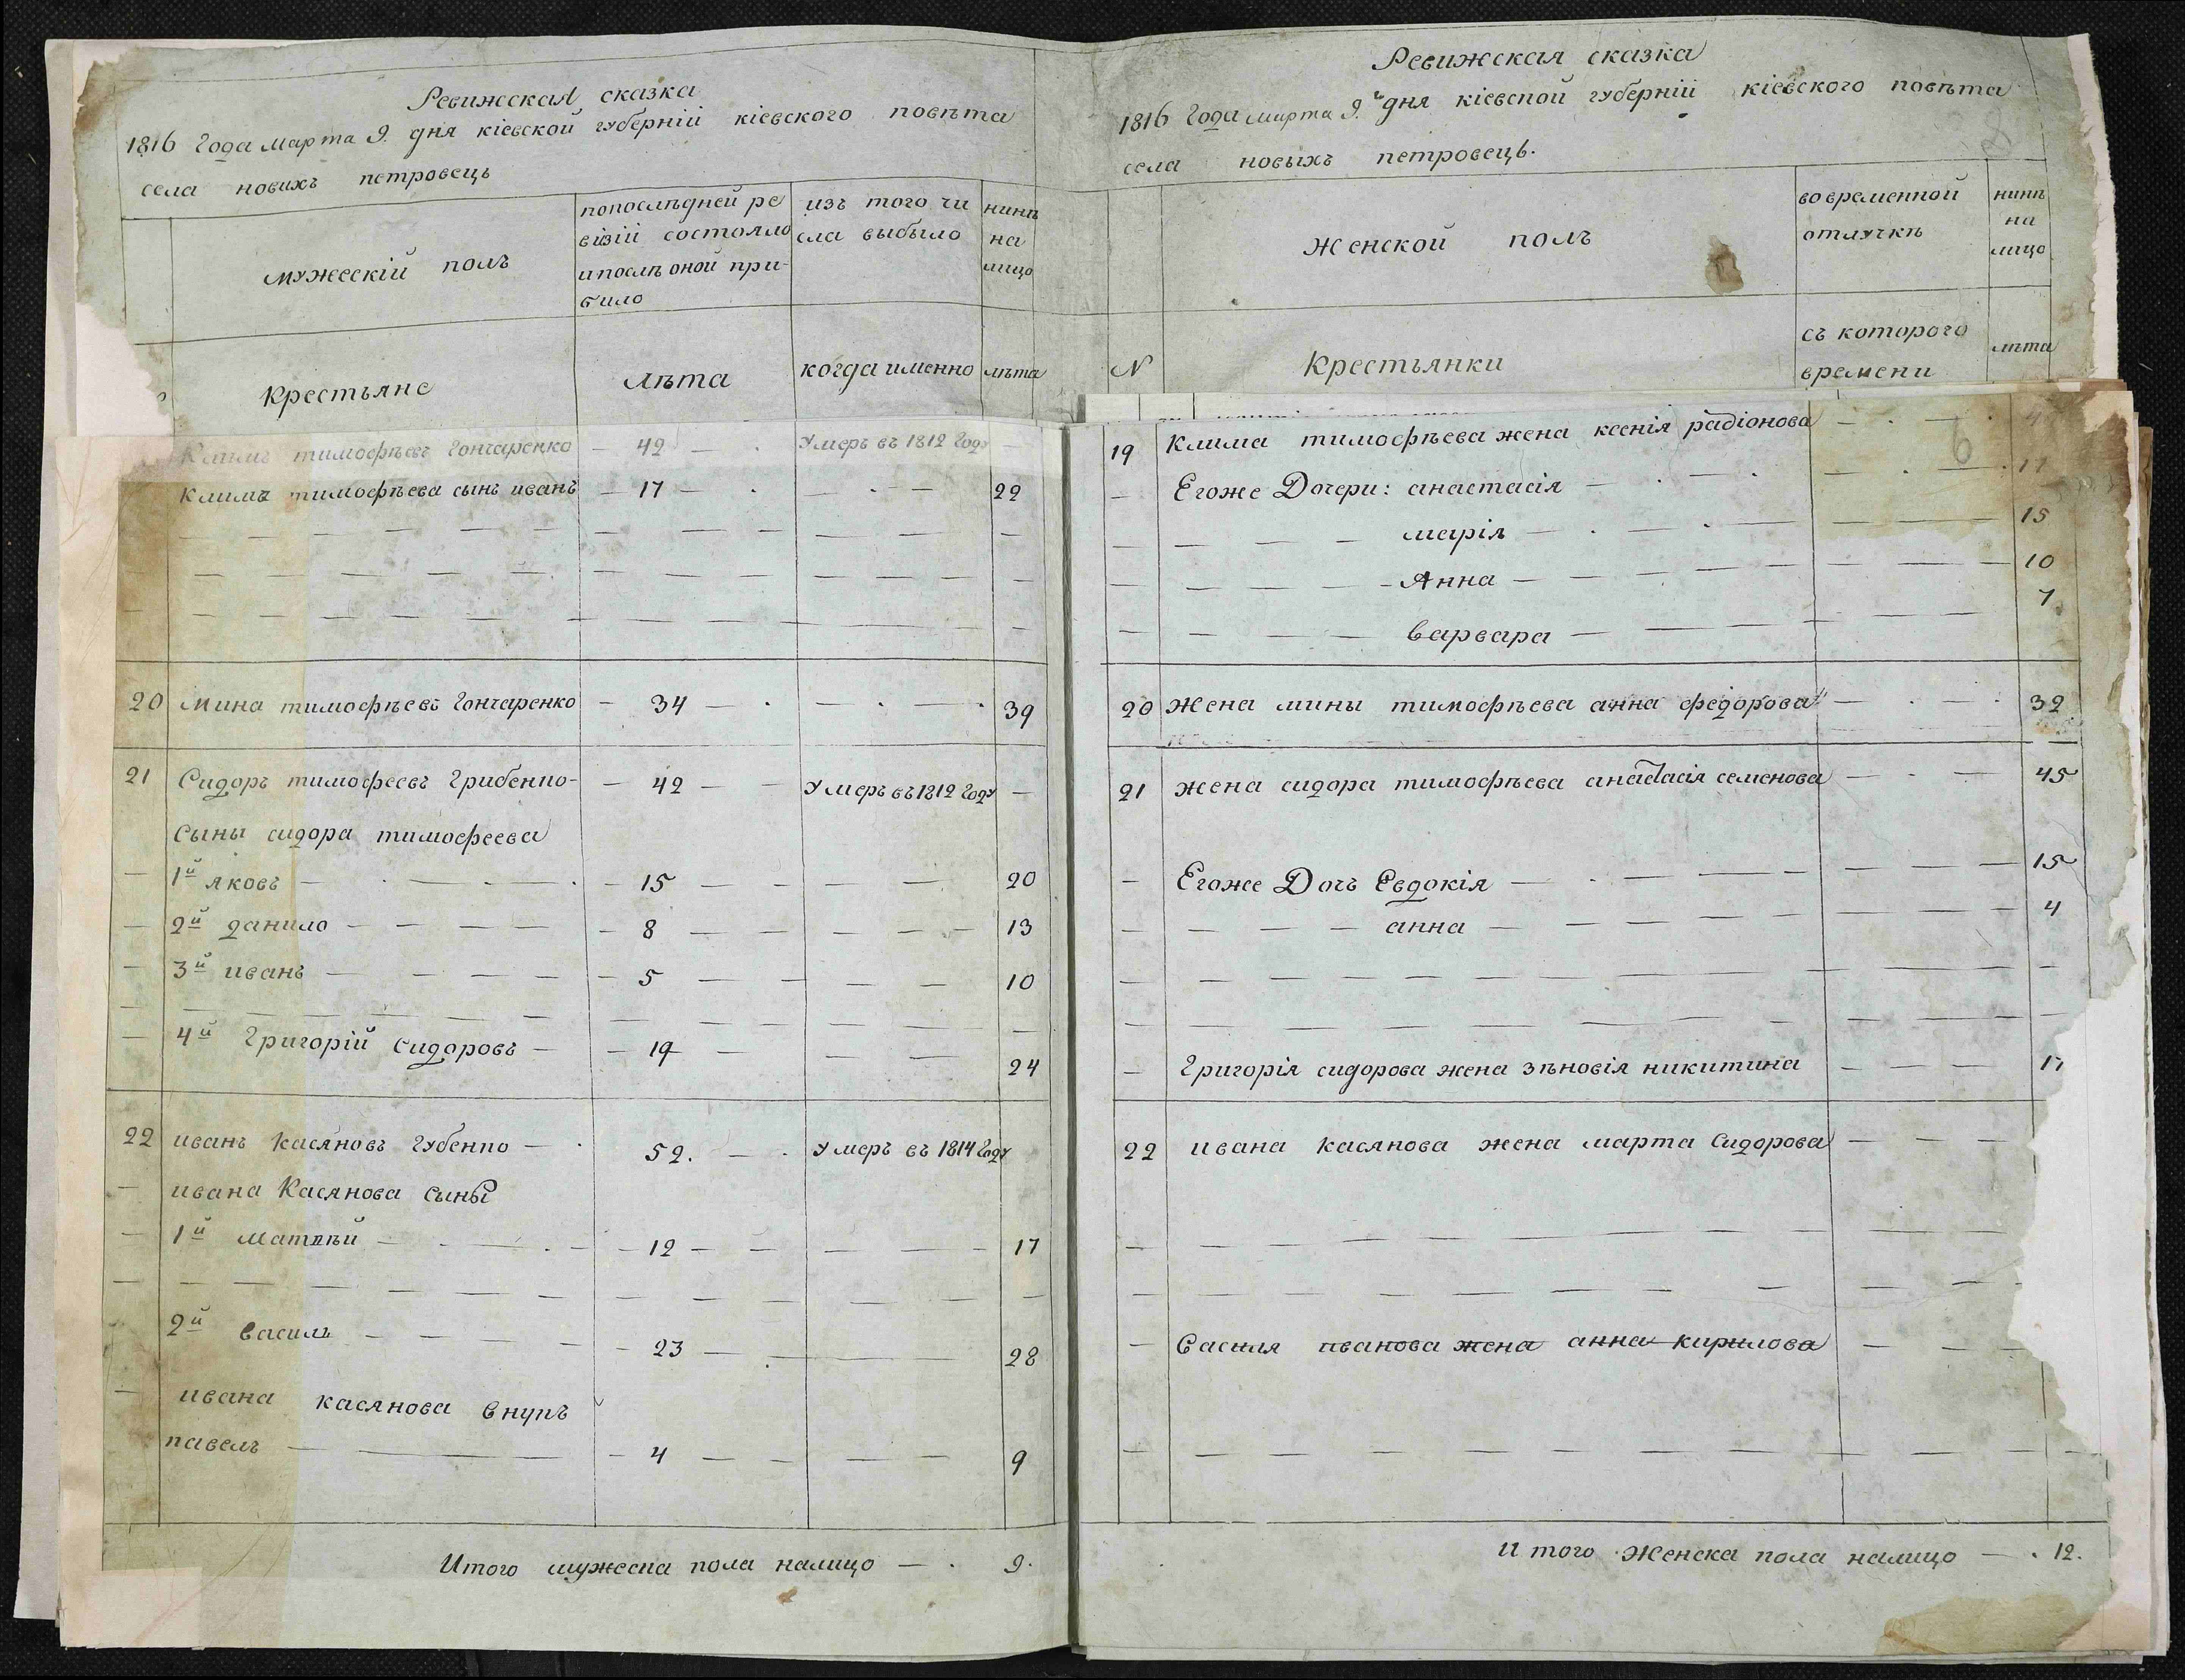 Ревижская сказка
1816 Года марта 9. дня кіевской губерніи кіевского повѣта
села новихъ петровець
мужескій полъ
попослѣдней ре
визіи состояло
ипослѣ оной при-
било
изъ того чи
сла выбыло
нинѣ
на
лицо
Крестьяне
лѣта
когда именно
лѣта
Климъ тимофѣевъ Гончаренко — 42 — Умеръ въ 1812 Году —
Клима тимофѣева сынъ иванъ — 17 — . — . — 22
20 Мина тимофѣевъ Гончаренко — 34 — . — . — . 39
21 Сидоръ тимофеевъ Грибенпо- — 42 — — Умеръ въ 1812 Году —
Сыны сидора тимофеева
— 1й яковъ — . — . — . — 15 — — — — 20
— 2й данило — — — — — 8 — — — — — 13
— 3й иванъ — — — — — 5 — — — — 10
— 4й Григорій Сидоровъ — — 19 — — — 24
22 иванъ Касяновъ Губенпо — . 52. — . Умеръ въ 1814 Году
— ивана Касянова Сыны
— 1й Матвѣй — . — . — — 12 — — — — — 17
2й василь — — — — — 23 — . — 28
— ивана касянова внупъ
павелъ — — — 4 — — — — 9
Итого мужеспа пола налицо — . 9.
Ревижская сказка
1816 Года марта 9.го дня кіевспой губерніи кіевского повѣта
села новыхъ петровець.
N
Женской полъ
вовременной
отлучкѣ
нинѣ
на
лицо
Крестьянки
съ которого
времени
лѣта
19 Клима тимофѣева жена ксенія радіонова — . —
— Егоже Дочери: анастасія — . — . — . — . 17
— — — — — марія — . — . — — — 15
— — — — — Анна — — — — — — — — 10
— — — — — варвара — — — — — 7
20 Жена мины тимофѣева анна федорова — . — . 32
21 жена сидора тимофѣева анастасія семенова — . — 45
— Егоже Дочь Евдокія — . — — — — — — 15
— — — — — анна — — — — — — — — 4
— Григорія сидорова жена зѣновія никитина — — — 17
22 ивана касянова жена марта Сидорова — — —
— Василя иванова жена анна кирилова — — —
Итого Женска пола налицо — . 12.